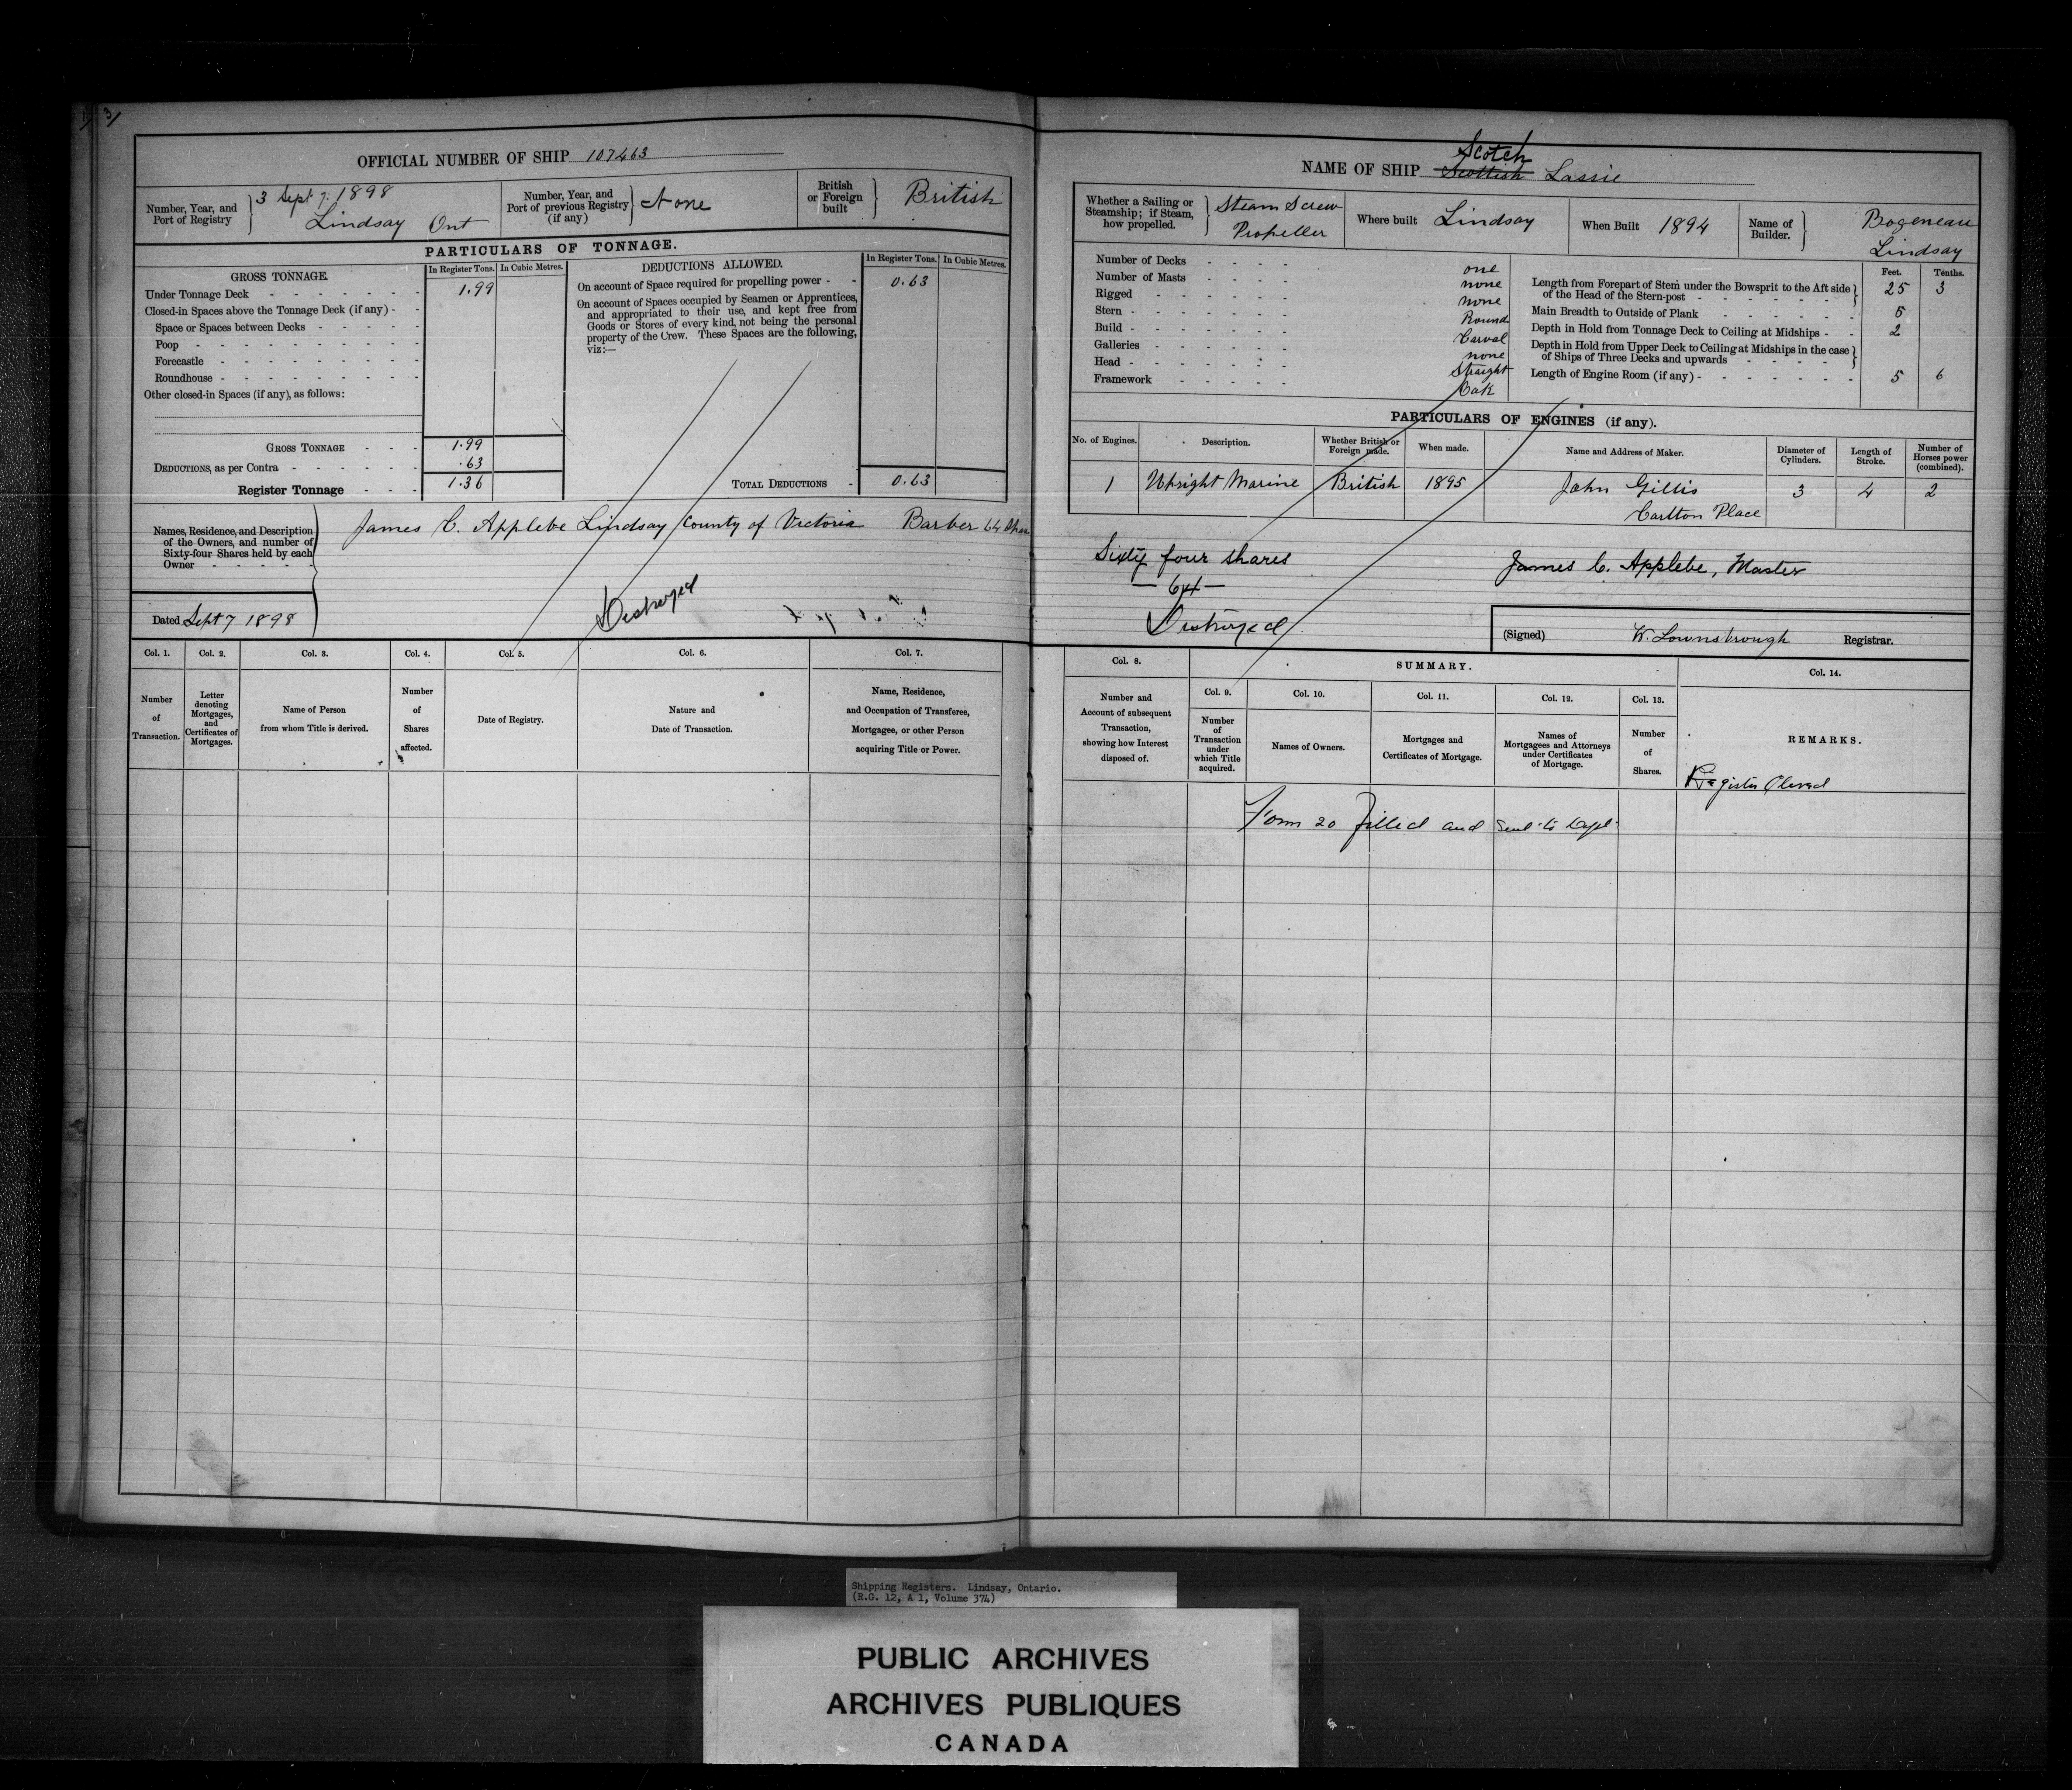 3
OFFICIAL NUMBER OF SHIP 107463
Number, Year, and Port of Registry } 3 Sept 7. 1898 Lindsay Ont
Number, Year, and Port of previous Registry (if any) } None
British or Foreign built } British
PARTICULARS OF TONNAGE.
GROSS TONNAGE. In Register Tons. In Cubic Metres.
Under Tonnage Deck 1.99
Closed-in Spaces above the Tonnage Deck (if any) -
Space or Spaces between Decks
Poop
Forecastle
Roundhouse
Other closed-in Spaces (if any), as follows:
GROSS TONNAGE 1.99
DEDUCTIONS, as per Contra .63
Register Tonnage 1.36
DEDUCTIONS ALLOWED. In Register Tons. In Cubic Metres.
On account of Space required for propelling power - 0.63
On account of Spaces occupied by Seamen or Apprentices,
and appropriated to their use, and kept free from
Goods or Stores of every kind, not being the personal
property of the Crew. These Spaces are the following,
viz:—
TOTAL DEDUCTIONS 0.63
Names, Residence, and Description
of the Owners, and number of
Sixty-four Shares held by each
Owner
James C. Applebe Lindsay County of Victoria Barber 64 Shares
Destroyed
Dated Sept 7 1898
Col. 1. Col. 2. Col. 3. Col. 4. Col. 5. Col. 6. Col. 7.
Number of Transaction.
Letter denoting Mortgages, and Certificates of Mortgages.
Name of Person from whom Title is derived.
Number of Shares affected.
Date of Registry.
Nature and Date of Transaction.
Name, Residence, and Occupation of Transferee, Mortgagee, or other Person acquiring Title or Power.
Scotch
NAME OF SHIP Scottish Lassie
Whether a Sailing or Steamship; if Steam, how propelled. } Steam Screw Propeller
Where built Lindsay
When Built 1894
Name of Builder. } Bogeneau Lindsay
Number of Decks one
Number of Masts none
Rigged none
Stern Round
Build Carval
Galleries none
Head Straight
Framework Oak
Feet. Tenths.
Length from Forepart of Stem under the Bowsprit to the Aft side
of the Head of the Stern-post 25 3
Main Breadth to Outside of Plank 5
Depth in Hold from Tonnage Deck to Ceiling at Midships 2
Depth in Hold from Upper Deck to Ceiling at Midships in the case
of Ships of Three Decks and upwards
Length of Engine Room (if any) 5 6
PARTICULARS OF ENGINES (if any).
No. of Engines. Description. Whether British or Foreign made. When made. Name and Address of Maker. Diameter of Cylinders. Length of Stroke. Number of Horses power (combined).
1 Upright Marine British 1895 John Gillis Carlton Place 3 4 2
Sixty four shares
— 64 —
Destroyed
James C. Applebe, Master
(Signed) Registrar.
Col. 8. SUMMARY. Col. 14.
Col. 9. Col. 10. Col. 11. Col. 12. Col. 13.
Number and Account of subsequent Transaction, showing how Interest disposed of.
Number of Transaction under which Title acquired.
Names of Owners.
Mortgages and Certificates of Mortgage.
Names of Mortgagees and Attorneys under Certificates of Mortgage.
Number of Shares.
REMARKS.
Register Closed
Form 20 filled and sent to Dept
Shipping Registers. Lindsay, Ontario.
(R.G. 12, A 1, Volume 374)
PUBLIC ARCHIVES
ARCHIVES PUBLIQUES
CANADA